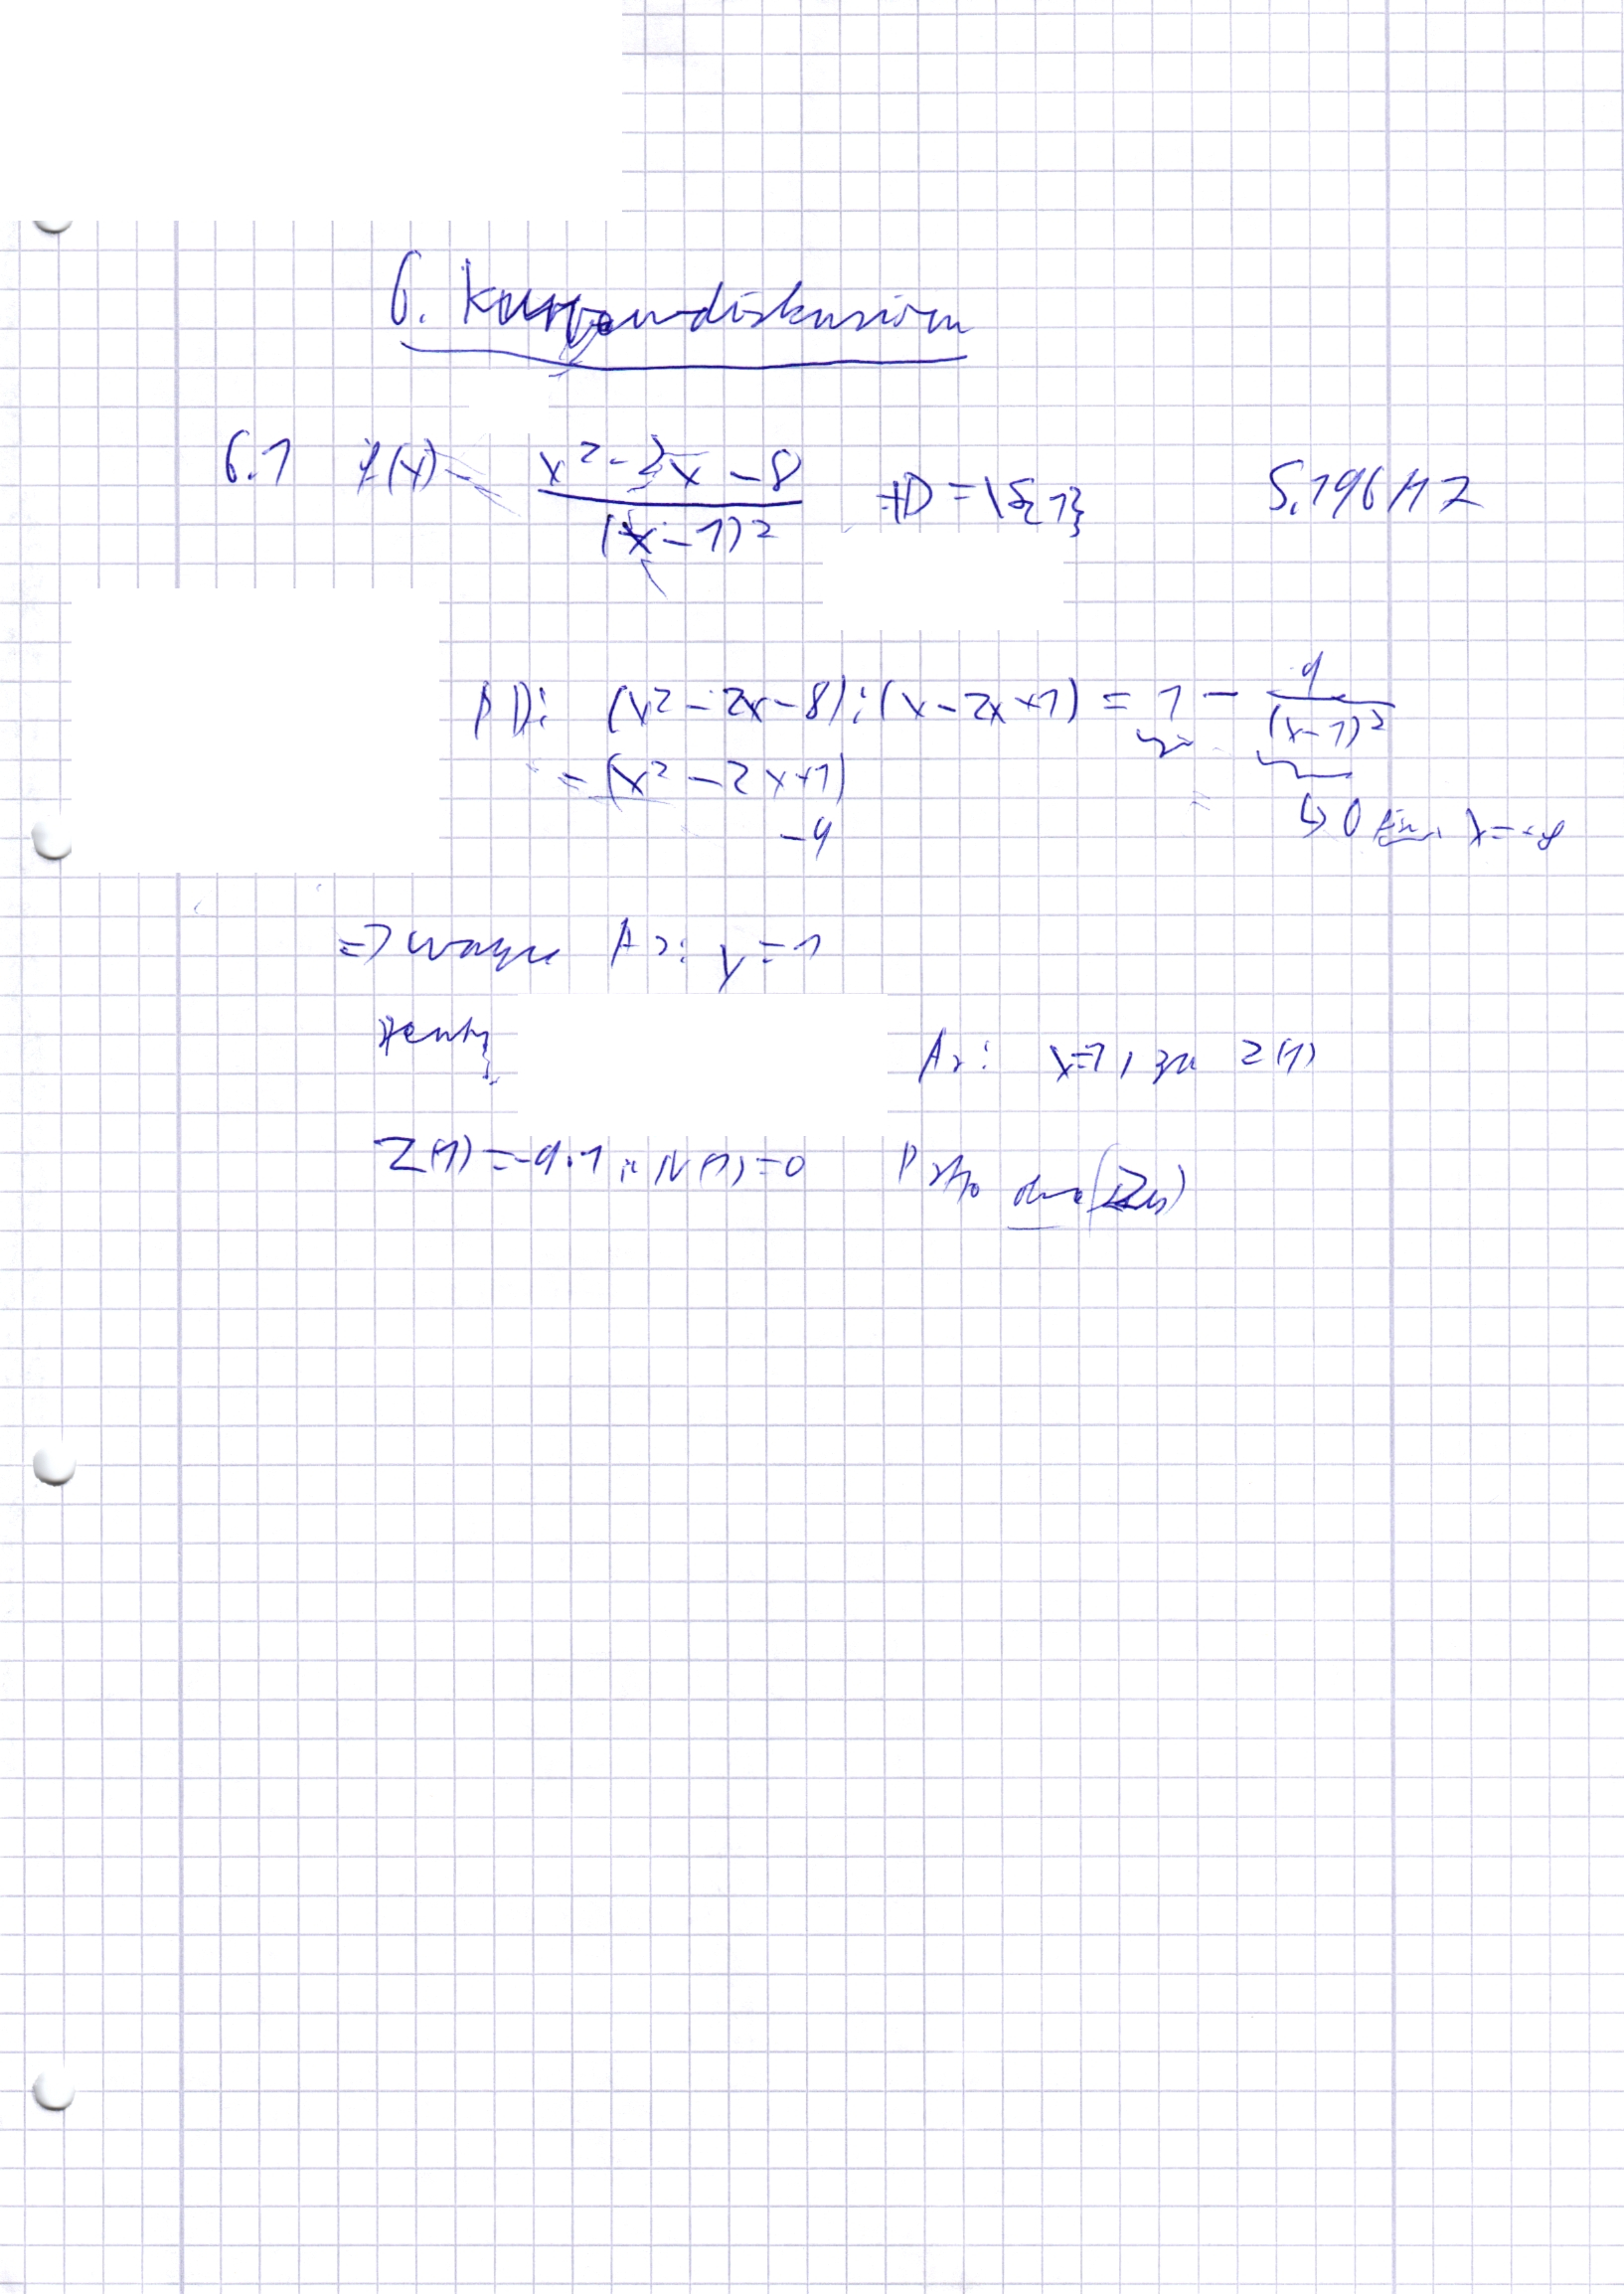 6. Kurvendiskussion
6.1 f(x) = x² - 2x - 8 / (x - 1)² D = \{1} S. 196 / 17
PD: (x² - 2x - 8) : (x - 2x + 1) = 1 - 9 / (x - 1)²
- (x² - 2x + 1)
-9
↳ 0 für x =
⇒ As: y = 1
senkr As: x = 1, zu Z(1)
Z(1) = -9 · 1 N(1) = 0